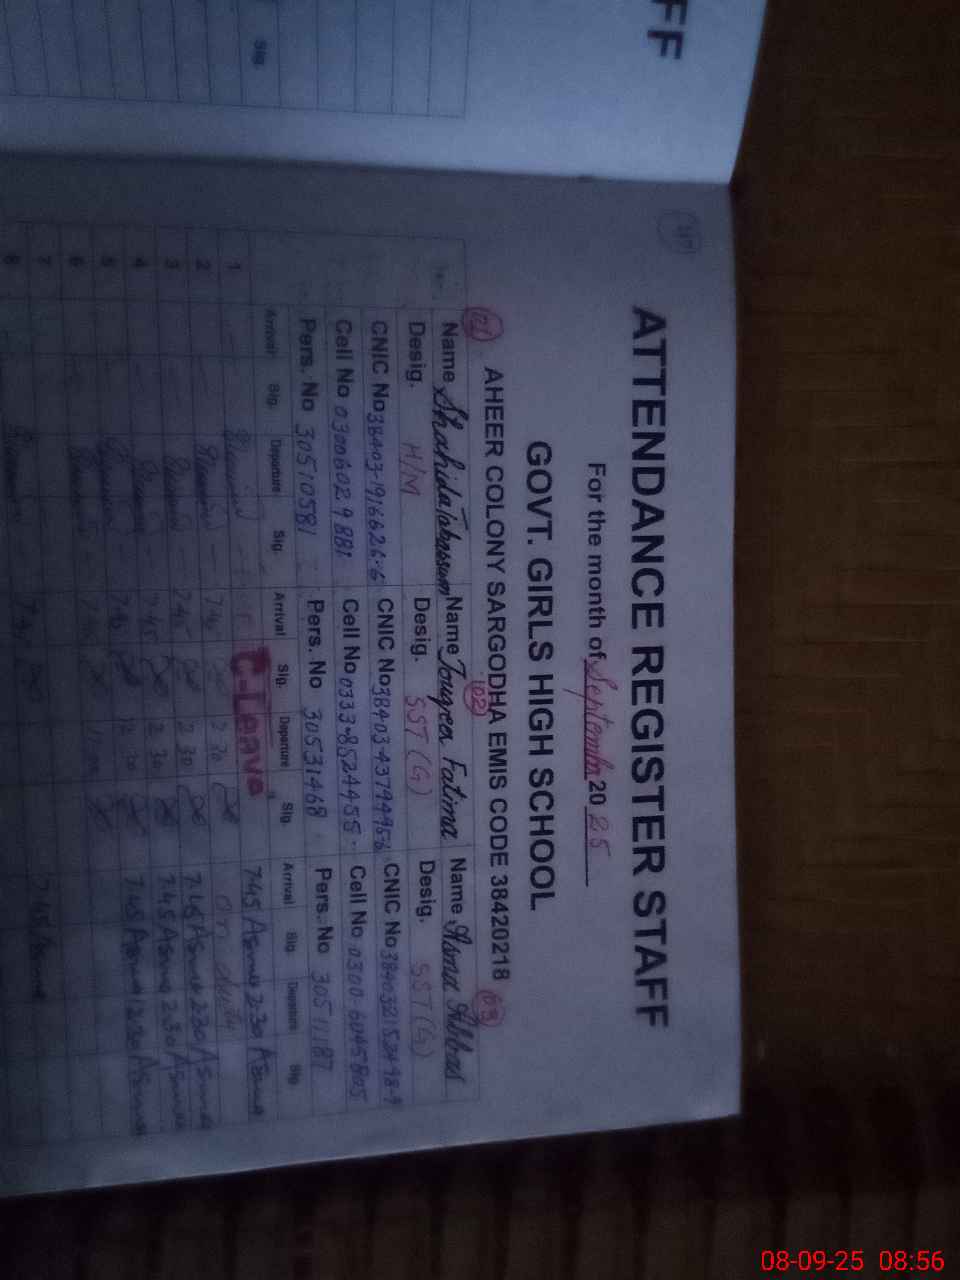 FF
Sig.
ATTENDANCE REGISTER STAFF
For the month of September 20 25
GOVT. GIRLS HIGH SCHOOL
AHEER COLONY SARGODHA EMIS CODE 38420218
01 02 03
Name Shahida Tabassum Name Touqeer Fatima Name Asma Abbas
Desig. H/M Desig. SST (G) Desig. SST (G)
CNIC No 38403-1916626-6 CNIC No CNIC No
Cell No 03006029881 Cell No 0333-8524455 Cell No 0300-6045805
Pers. No 30510581 Pers. No 30531468 Pers. No 30511187
Arrival Sig. Departure Sig. Arrival Sig. Departure Sig. Arrival Sig. Departure Sig.
1 C-Leave 7:45 Asma 2:30 Asma
2 7:46 2 30 On duty
3 7:45 2 30 7:45 Asma 2:30 Asma
4 7:45 2 30 7:45 Asma 2:30 Asma
5 7:45 12 30 7:45 Asma 12:30 Asma
6
7
8 7:45 Asma
08-09-25 08:56